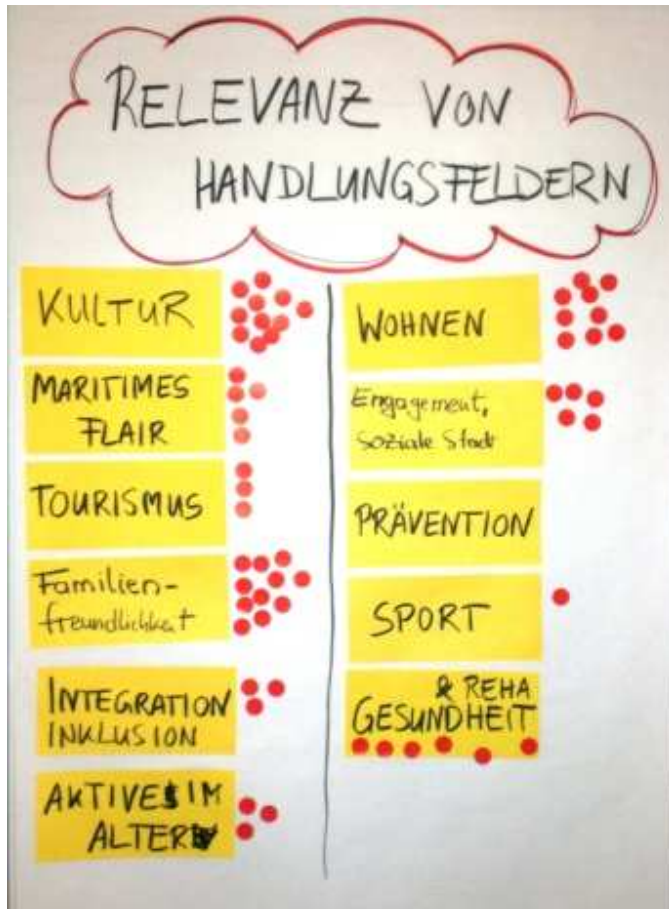 RELEVANZ VON
HANDLUNGSFELDERN
KULTUR
MARITIMES
FLAIR
TOURISMUS
Familien-
freundlichkeit
INTEGRATION
INKLUSION
AKTIVES IM
ALTER
WOHNEN
Engagement,
soziale Stadt
PRÄVENTION
SPORT
& REHA
GESUNDHEIT